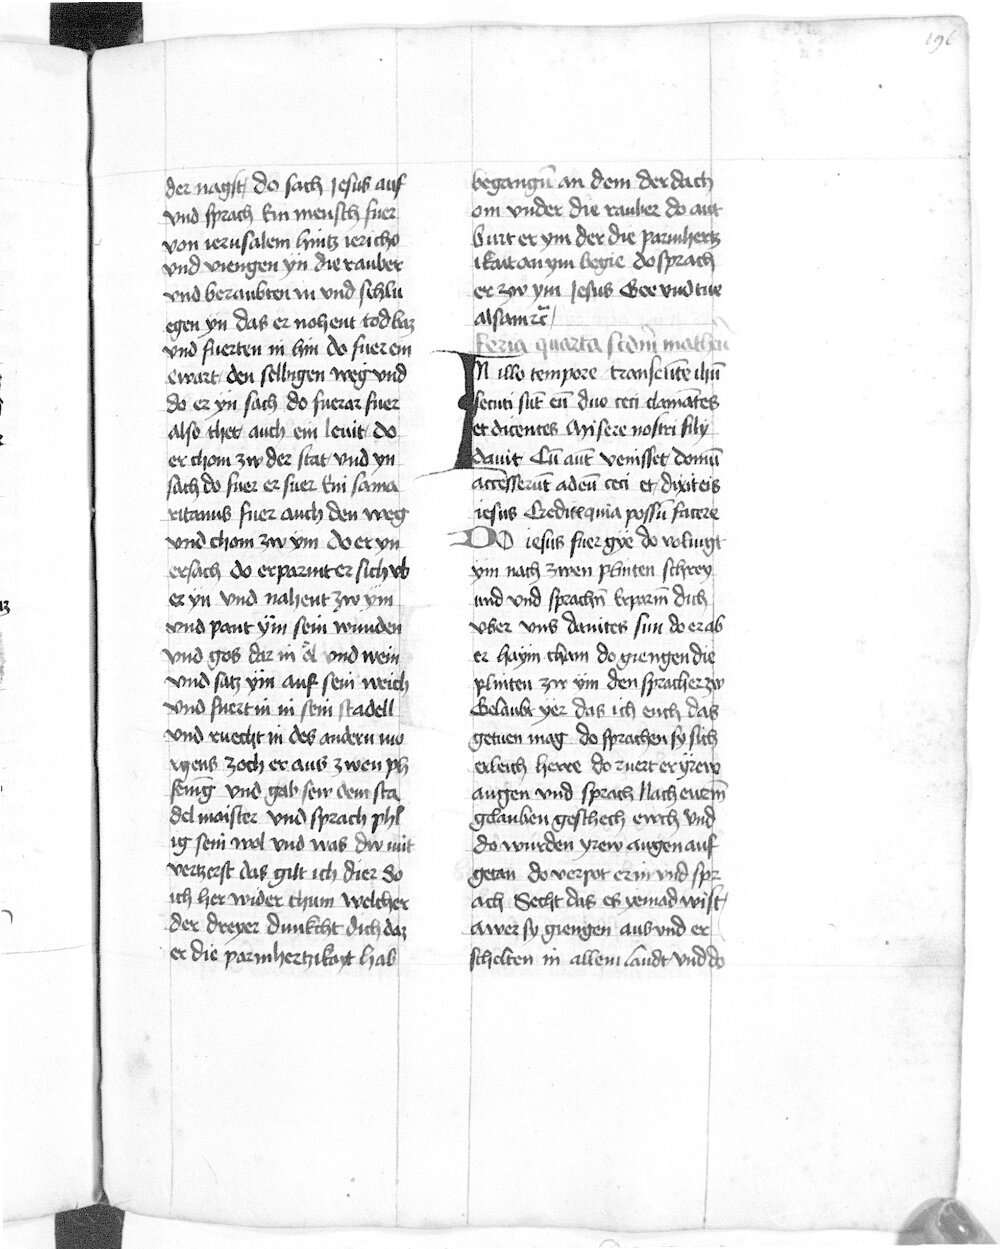 196
der nagst do sach Jesus auf
vnd sprach Ein mensch fuer
von ierusalem hintz iericho
vnd viengen yn die rauber
vnd beraubten in vnd schlu
egen yn das er nohent tod baz
vnd fuerten in hin do fuer ein
ewart den selbigen weg vnd
do er yn sach do fuerar fuer
also thet auch ein leuit do
er chom zw der stat vnd yn
sach do fuer er fuer Ein sama
ritanus fuer auch den weg
vnd chom zw ym do er yn
ersach do erparmt er sich vb
er yn vnd nahent zw ym
vnd pant ym sein wunden
vnd gos dar in öl vnd wein
vnd satz ym auf sein weich
vnd fuert in in sein stadell
vnd ruecht in des andern mo
rgens zoch er aus zwen ph
fenig vnd gab sew dem sta
del maister vnd sprach phl
ig sein wol vnd was dw mit
vertzerst das gilt ich dier so
ich her wider chum welcher
der dreyer dunkcht dich daz
er die parmhertzikayt hab
begangn̄ an dem der dach
om vnder die rauber do ant
burt er ym der die parmhertz
ikait an ym begie do sprach
er zw ym Jesus Gee vnd tue
alsam rc̄
feria quarta scd̄m math̄m
IN illo tempore transeūte ihū
secuti sūt eū duo ceci clamātes
et dicentes Misere nostri fily
dauit Cū aūt venisset domū
accesserūt ad eū ceci et dixit eis
iesus Creditis quia possū facere
DO iesus fuer gye do voluigt
ym nach zwen plinten schrey
und vnd sprachn̄ Erparm̄ dich
vber vns dauites sun do er ab
er haym cham do giengen die
plinten zw ym den sprach er zw
Gelaubt yer das ich euch das
getuen mag do sprachen sy sich
erleich herre do ruert er yrew
augen vnd sprach Nach eurm̄
gelauben geschech ewch vnd
do wurden yrew augen auf
getan do verpot er in vnd spr
ach Secht das es yemad wist
awer sy giengen aus vnd er
schelten in allem landt vnd do